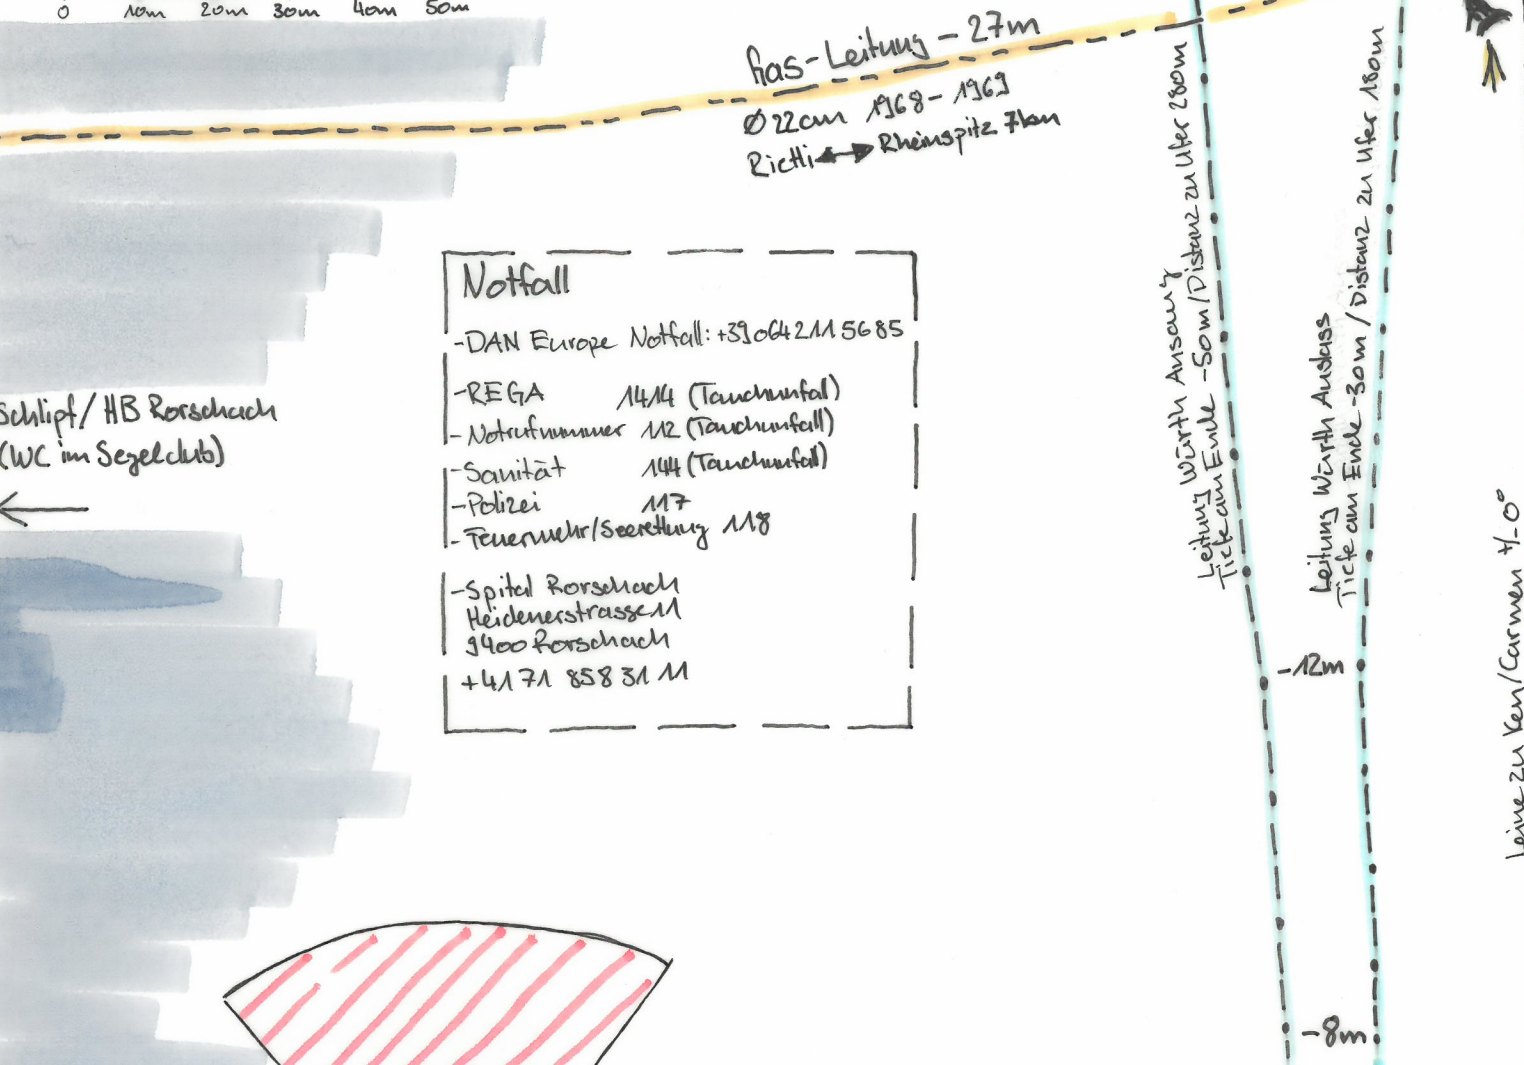 0 10m 20m 30m 40m 50m
Gas-Leitung - 27m
Ø 22cm 1968 - 1969
Rietli ↔ Rheinspitz 7km
Notfall
- DAN Europe Notfall: +390642115685
- REGA 1414 (Tauchunfall)
- Notrufnummer 112 (Tauchunfall)
- Sanität 144 (Tauchunfall)
- Polizei 117
- Feuerwehr/Seerettung 118
- Spital Rorschach
Heidenerstrasse 11
9400 Rorschach
+41 71 858 31 11
Schlipf / HB Rorschach
(WC im Segelclub)
Leitung Würth Ansaug
Tiefe am Ende -50m / Distanz zu Ufer 280m
Leitung Würth Auslass
Tiefe am Ende -30m / Distanz zu Ufer 180m
-12m
-8m
Leine zu Ken/Carmen +/-0°